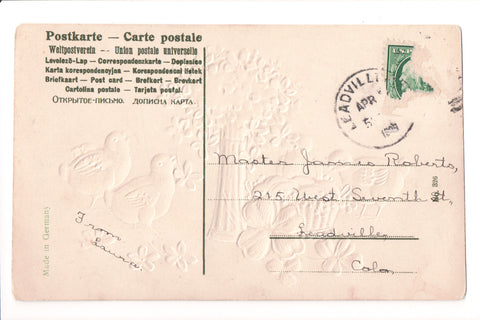 Postkarte — Carte postale
Weltpostverein — Union postale universelle
Levelező-Lap — Correspondenzkarte — Dopisnice
Karta korespondencyjna — Korespondencni listek
Briefkaart — Post card — Brefkort — Brevkort
Cartolina postale — Tarjeta postal.
ОТКРЫТОЕ-ПИСЬМО. ДОПИСНА КАРТА.
LEADVILL
APR
5
Master James Roberts,
215 West Seventh St,
Leadville,
Colo.
No. 206
From
Made in Germany